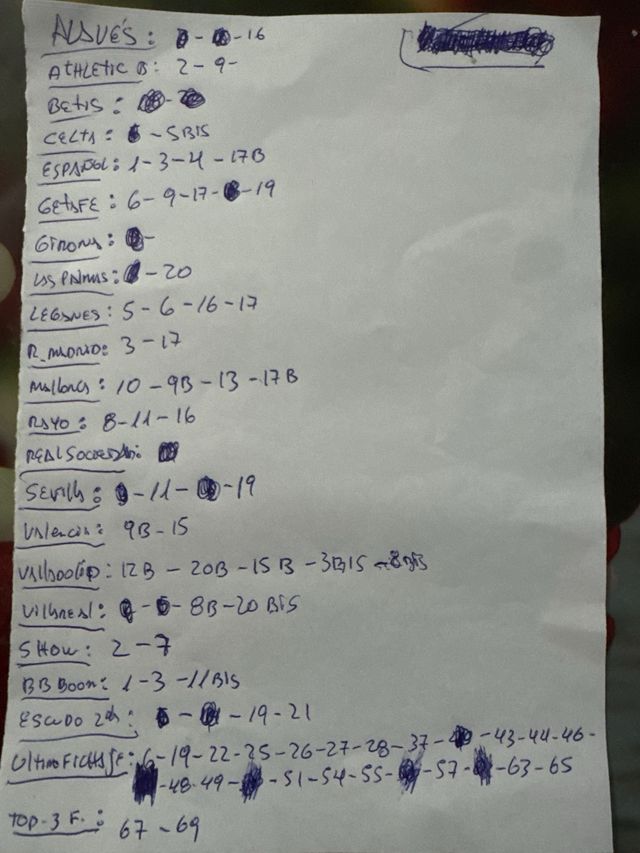 ALAVÉS: - 16
ATHLETIC B: 2-9-
BETIS:
CELTA: - 5BIS
ESPAÑOL: 1-3-4-17B
GETAFE: 6-9-17- -19
GIRONA: -
LAS PALMAS: -20
LEGANES: 5-6-16-17
R. MADRID: 3-17
Mallorca: 10-9B-13-17B
RAYO: 8-11-16
REAL SOCIEDAD:
SEVILLA: -11- -19
Valencia: 9B-15
VALLADOLID: 12B-20B-15B-3BIS-8BIS
VILLAREAL: - - 8B-20BIS
SHOW: 2-7
BB BOOM: 1-3-11BIS
ESCUDO 2ª: - -19-21
ULTIMO FICHAJE: 6-19-22-25-26-27-28-37- -43-44-46-
-48-49- -51-54-55- -57- -63-65
TOP-3 F.: 67-69